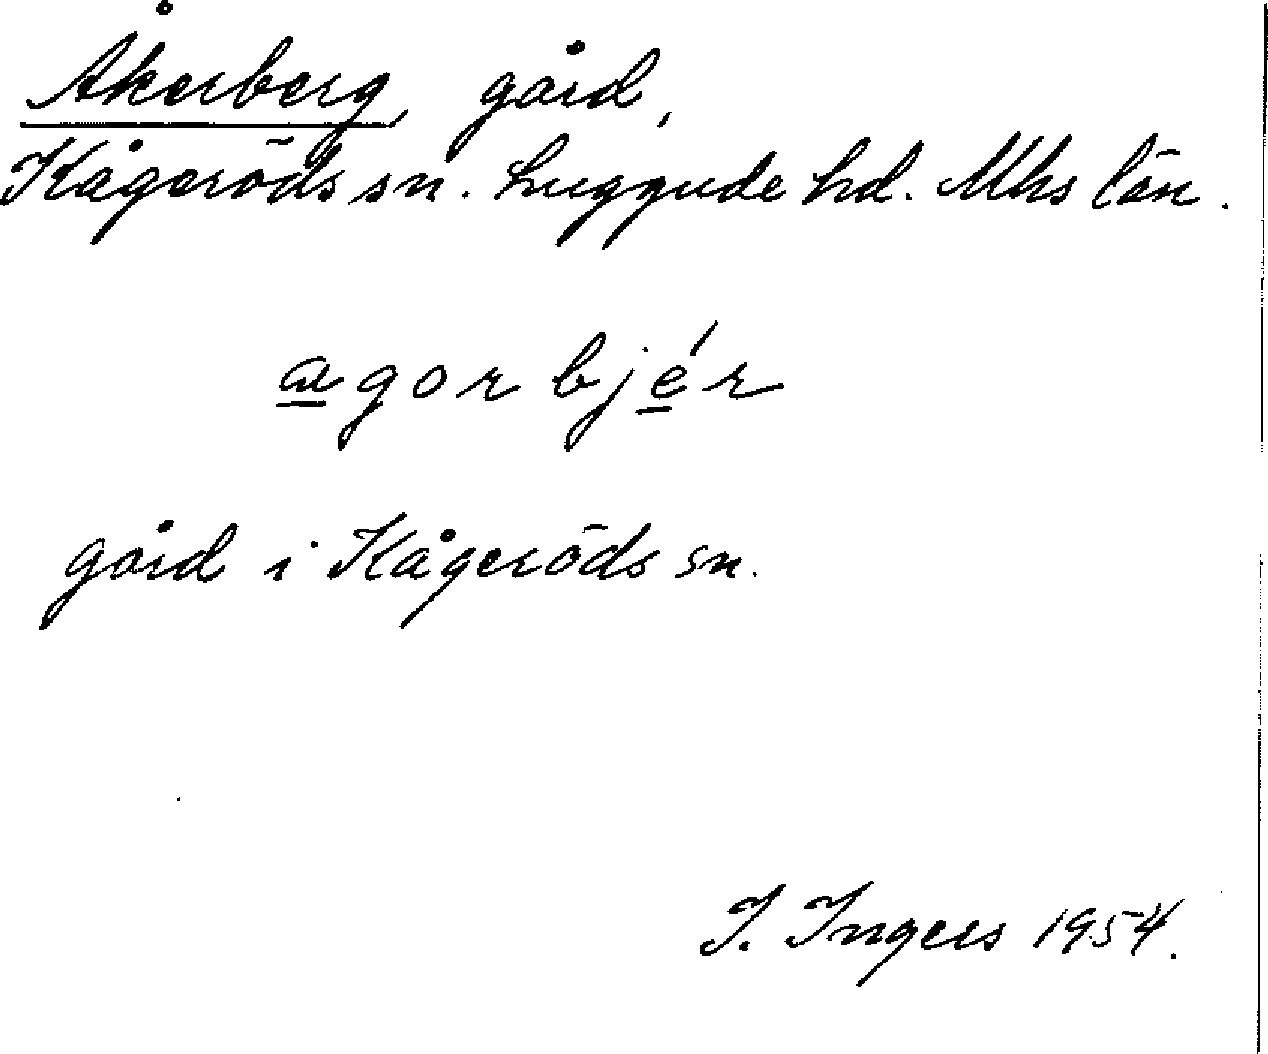 Åkerberg, gård,
Kågeröds sn. Luggude hd. Mhs län.
agorbjér
gård i Kågeröds sn.
I. Ingers 1954.